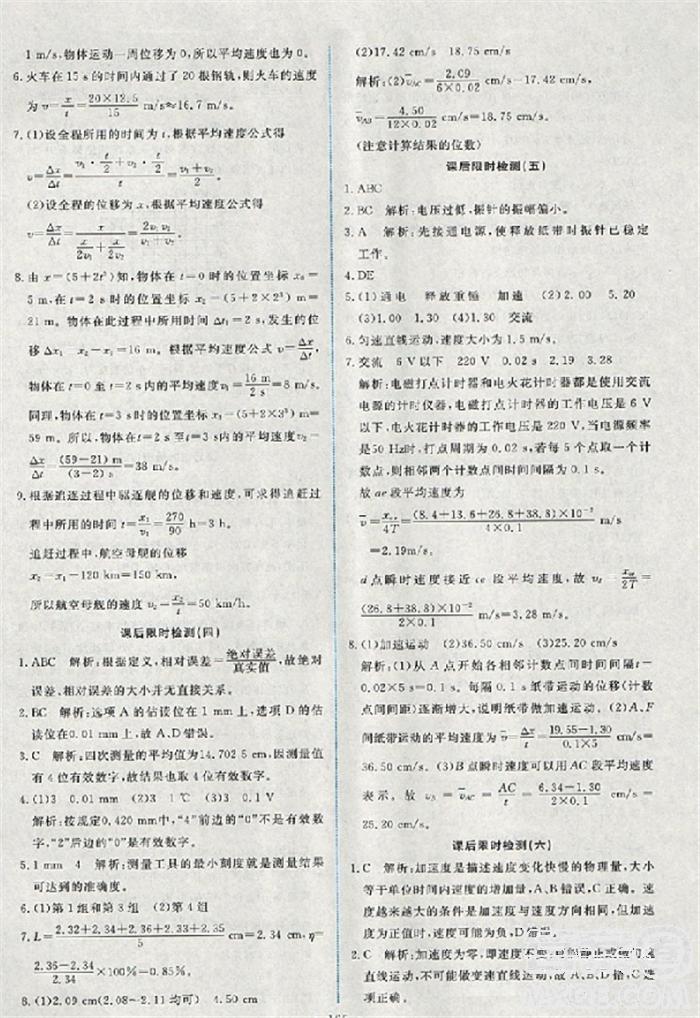 1 m/s，物体运动一周位移为0，所以平均速度也为0。
6. 火车在15 s的时间内通过了20根钢轨，则火车的速度
为v=x/t=20×12.5/15 m/s≈16.7 m/s。
7. (1)设全程所用的时间为t，根据平均速度公式得
v=Δx/Δt=(v₁·t/2+v₂·t/2)/t=(v₁+v₂)/2
(2)设全程的位移为x，根据平均速度公式得
v=Δx/Δt=x/(x/2/v₁+x/2/v₂)=2v₁v₂/(v₁+v₂)
8. 由x=(5+2t³)知，物体在t=0时的位置坐标x₁=
5 m，在t=2 s时的位置坐标x₂=(5+2×2³)m=
21 m。物体在此过程中所用时间t=2 s，发生的位
移Δx₁=16 m。根据平均速度公式v=Δx/Δt，得
物体在t=0至t=2 s时的平均速度v₁=16 m/2 s=8 m/s。
同理，物体在t=3 s时的位置坐标x₃=(5+2×3³)=
59 m。所以，物体在t=2 s至t=3 s时的平均速度v₂=
Δx/Δt=(59-21)/(3-2) m/s=38 m/s。
9. 根据追逐过程中驱逐舰的位移和速度，可求得追赶过
程中所用的时间t=x₁/v₁=270/90 h=3 h。
追赶过程中，航空母舰的位移
x₂=x₁-120 km=150 km
所以航空母舰的速度v₂=x₂/t=50 km/h。
课后限时检测(四)
1. ABC 解析：根据定义，相对误差=绝对误差/真实值，故绝对
误差、相对误差的大小并无直接关系。
2. BC 解析：选项A的估读位在1 mm上，选项D的估
读位在0.01 mm上，故A、D错误。
3. C 解析：四次测量的平均值为14.702 5 cm，测量值
有4位有效数字，故结果应取4位有效数字。
4. (1)3 0.01 mm (2)3 1 mm (3)3 0.1 V
解析：按规定，0.420 mm中，“4”前边的“0”不是有效
数字，“2”后边的“0”是有效数字。
5. 1 mm 4 解析：测量工具的最小刻度就是测量结果
可达到的准确度。
6. (1)第1组和第3组 (2)第4组
7. L=(2.32+2.34+2.36+2.33+2.35)/5 cm=2.34 cm，η=
(2.36-2.34)/2.34×100%=0.85%。
8. (1)2.09 cm(2.08~2.11均可) 4.50 cm
(2)17.42 cm/s 18.75 cm/s
解析：v̄AC=2.09/(6×0.02) cm/s=17.42 cm/s
v̄AB=4.50/(12×0.02) cm/s=18.75 cm/s
(注意计算结果的位数)
课后限时检测(五)
1. ABC
2. BC 解析：电压过低，振针的振幅偏小。
3. A 解析：先接通电源，使释放纸带时振针已稳定
工作。
4. DE
5. (1)通电 释放重锤 加速 (2)0.02 5.20
(3)1.00 1.30 (4)交流
6. 匀速直线运动，速度大小为1.5 m/s。
7. 交流 6 V以下 220 V 0.02 s 2.19 3.28
解析：电磁打点计时器和电火花计时器都是使用交流
电源的计时仪器，电磁打点计时器的工作电压是6 V
以下，电火花计时器的工作电压是220 V，当电源频率
是50 Hz时，打点周期为0.02 s，若每5个点取一个计
数点，则相邻两个计数点间的时间间隔为0.1 s。
故ae段平均速度为
v̄=xae/4T=(8.4+13.6+26.8+38.8)×10⁻²/(4×0.1) m/s
=2.19 m/s。
d点瞬时速度接近ce段平均速度，故v_d=xce/2T=
(26.8+38.8)×10⁻²/(2×0.1) m/s=3.28 m/s。
8. (1)加速运动 (2)36.50 cm/s (3)25.20 cm/s
解析：(1)从A点开始各相邻计数点间时间间隔t=
0.02×5 s=0.1 s。每隔0.1 s纸带运动的位移(计数
点间距)逐渐增大，说明纸带做加速运动。(2)A、F
间纸带运动的平均速度为v̄=(19.55-1.30)/(0.1×5) cm/s=
36.50 cm/s。(3)B点瞬时速度可以用AC段平均速度
表示。故v_B=v̄_AC=AC/t=(6.34-1.30)/(2×0.1) cm/s=
25.20 cm/s。
课后限时检测(六)
1. C 解析：加速度是描述速度变化快慢的物理量，大小
等于单位时间内速度的增加量，A、B错误，C正确。速
度越来越大的条件是加速度与速度方向相同，当加速
度为正值时，速度可能为负，D错误。
2. BC 解析：加速度为零，即速度不变
直线运动，不可能做变速直线运动，故A、D错误，B、C选
项正确。
165